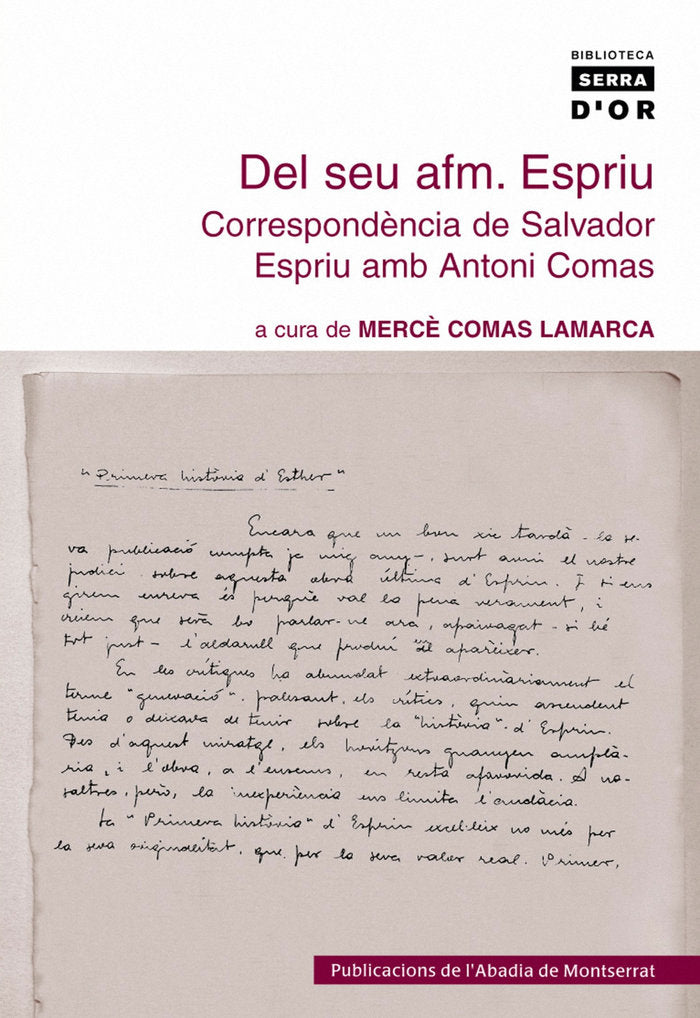 BIBLIOTECA
SERRA
D'OR
Del seu afm. Espriu
Correspondència de Salvador
Espriu amb Antoni Comas
a cura de MERCÈ COMAS LAMARCA
"Primera història d'Esther"
Encara que un bon xic tardà - la se-
va publicació compta ja mig any -, surt avui el nostre
judici sobre aquesta obra última d'Espriu. I si ens
girem enrera és perquè val la pena verament, i
creiem que serà bo parlar-ne ara, apaivagat - si bé
tot just - l'aldarull que produí en aparèixer.
En les crítiques ha abundat extraordinàriament el
terme "generació", palesant, els crítics, quin ascendent
tenia o deixava de tenir sobre la "història" d'Espriu.
Des d'aquest miratge, els horitzons guanyen amplà-
ria, i l'obra, a l'ensems, en resta afavorida. A no-
saltres, però, la inexperiència ens limita l'audàcia.
La "Primera història" d'Espriu excel·leix no més per
la seva originalitat, que per la seva valor real. Primer,
Publicacions de l'Abadia de Montserrat